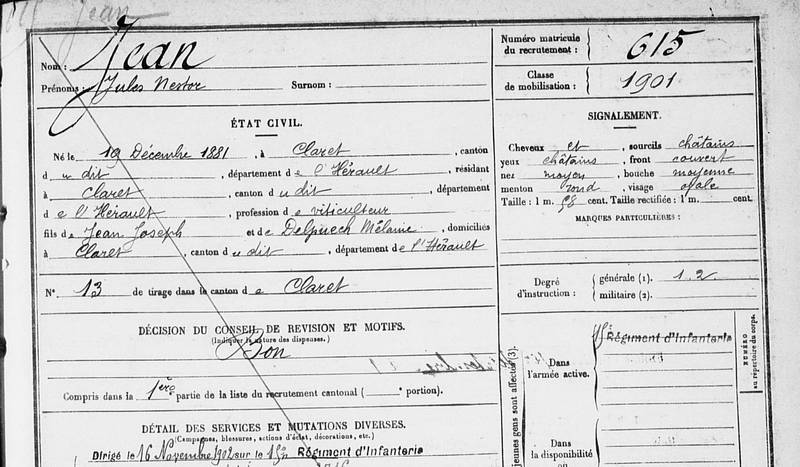 Jean
Nom : Jean
Prénoms : Jules Nestor Surnom :
ÉTAT CIVIL.
Né le 19 Décembre 1881, à Claret, canton
du dit, département de l'Hérault, résidant
à Claret, canton du dit, département
de l'Hérault, profession de viticulteur
fils de Jean Joseph et de Delpuech Mélanie, domiciliés
à Claret, canton du dit, département de l'Hérault
N° 13 de tirage dans le canton de Claret
DÉCISION DU CONSEIL DE REVISION ET MOTIFS.
(Indiquer la nature des dispenses.)
Bon
Compris dans la 1ère partie de la liste du recrutement cantonal ( e portion).
DÉTAIL DES SERVICES ET MUTATIONS DIVERSES.
(Campagnes, blessures, actions d'éclat, décorations, etc.)
Dirigé le 16 Novembre 1902 sur le 15e Régiment d'Infanterie
Numéro matricule
du recrutement : 615
Classe
de mobilisation : 1901
SIGNALEMENT.
Cheveux et, sourcils châtains
yeux châtains, front couvert
nez moyen, bouche moyenne
menton rond, visage ovale
Taille : 1 m. 58 cent. Taille rectifiée : 1 m. cent.
MARQUES PARTICULIÈRES :
Degré
d'instruction :
générale (1). 1.2.
militaire (2).
jeunes gens sont affectés (3).
Dans
l'armée active.
15e Régiment d'Infanterie
NUMÉRO
au répertoire du corps.
Dans
la disponibilité
ou